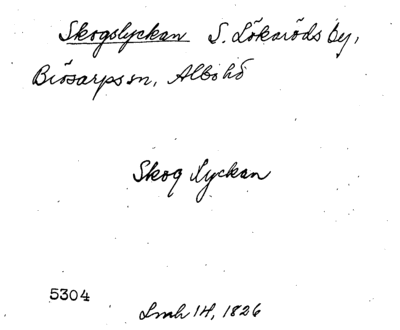 Skogslyckan S. Lökaröds by,
Brösarps sn, Albo hd
Skog lyckan
5304
Lmh 14, 1826